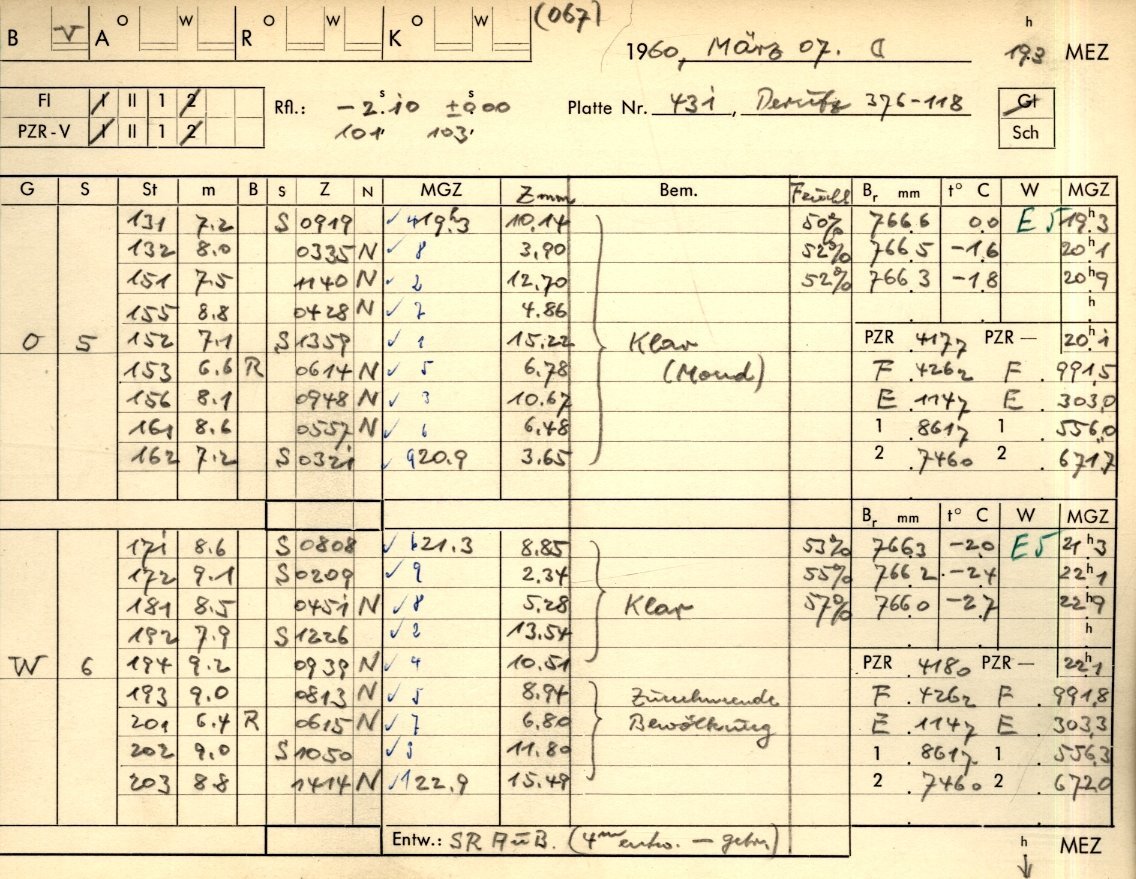 (067)
B V A O W R O W K O W
1960, März 07. h 19.3 MEZ
Fl I II 1 2 Rfl.: -2.s10 ±0.s00 Platte Nr. 431, 376-118 Gl
PZR-V I II 1 2 101' 103' Sch
G S St m B S Z N MGZ Zmm Bem. Br mm t° C W MGZ
131 7.2 S 0919 ✓ 4 19h.3 10.14 50% 766.6 0.0 E 5 19h.3
132 8.0 0335 N ✓ 8 3.90 52% 766.5 -1.6 20h.1
151 7.5 1140 N ✓ 2 12.70 52% 766.3 -1.8 20h.9
155 8.8 0428 N ✓ 7 4.86 h
O 5 152 7.1 S 1359 ✓ 1 15.22 Klar PZR .4177 PZR — 20h.1
153 6.6 R 0614 N ✓ 5 6.78 (Mond) F .4262 F .9915
156 8.1 0948 N ✓ 3 10.67 E .1147 E .3030
161 8.6 0557 N ✓ 6 6.48 1 .8617 1 .5560
162 7.2 S 0321 ✓ 9 20.9 3.65 2 .7460 2 .6717
Br mm t° C W MGZ
171 8.6 S 0808 ✓ 6 21.3 8.85 53% 766.3 -2.0 E 5 21h.3
172 9.1 S 0209 ✓ 9 2.34 55% 766.2 -2.4 22h.1
181 8.5 0451 N ✓ 8 5.28 Klar 57% 766.0 -2.7 22h.9
192 7.9 S 1226 ✓ 2 13.54 h
W 6 194 9.2 0939 N ✓ 4 10.51 PZR .4180 PZR — 22h.1
193 9.0 0813 N ✓ 5 8.94 Zunehmende F .4262 F .9918
201 6.4 R 0615 N ✓ 7 6.80 Bewölkung E .1147 E .3033
202 9.0 S 1050 ✓ 3 11.80 1 .8617 1 .5563
203 8.8 1414 N ✓ 1 22.9 15.49 2 .7460 2 .6720
Entw.: SR AuB. (4m entw. — h MEZ